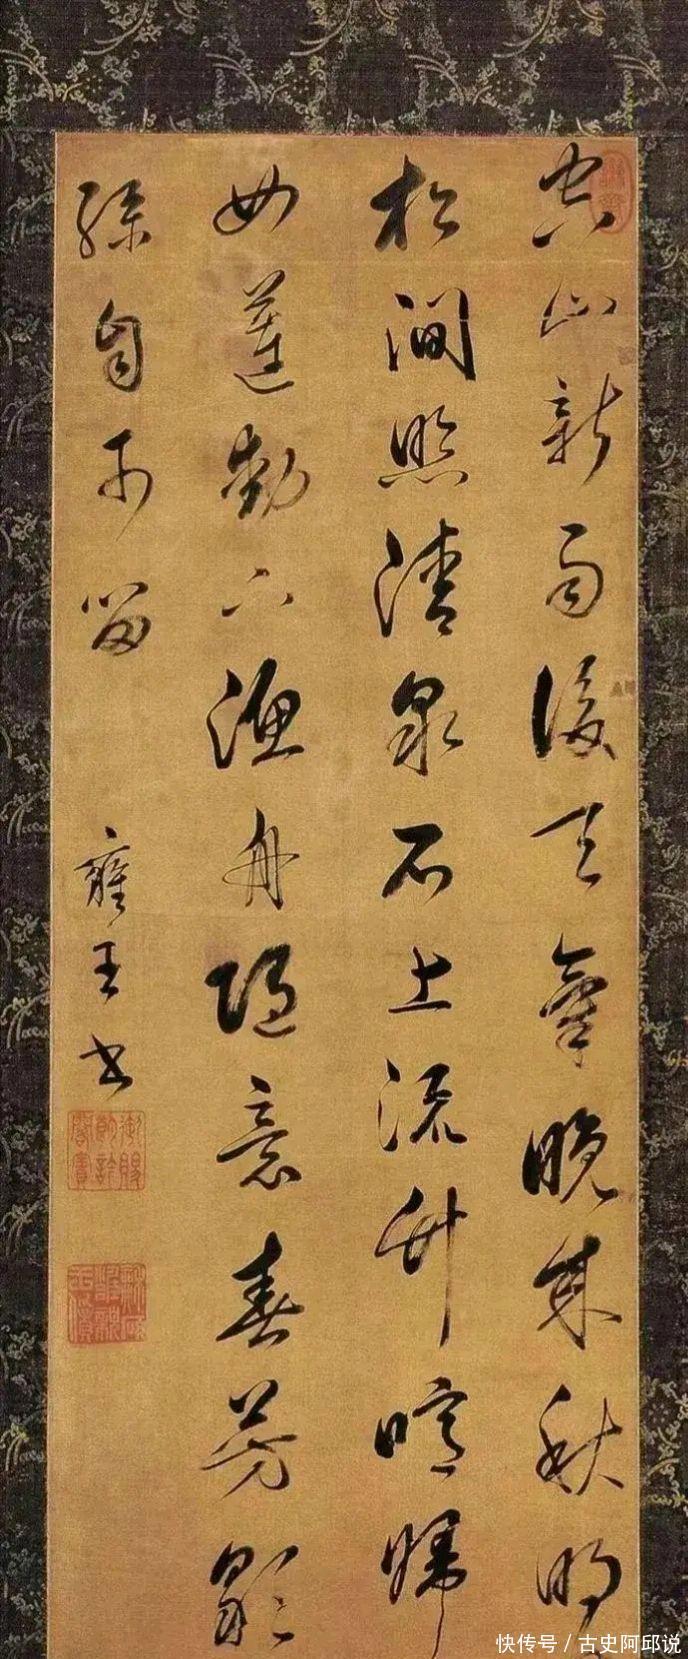 空山新雨後天氣晚來秋明
松澗照清泉石上流竹喧歸
女蓮動下漁舟隨意春芳歇
孫自可留
雍王書
御賜朗吟閣寶
和碩雍親王寶
快传号 / 古史阿邱说